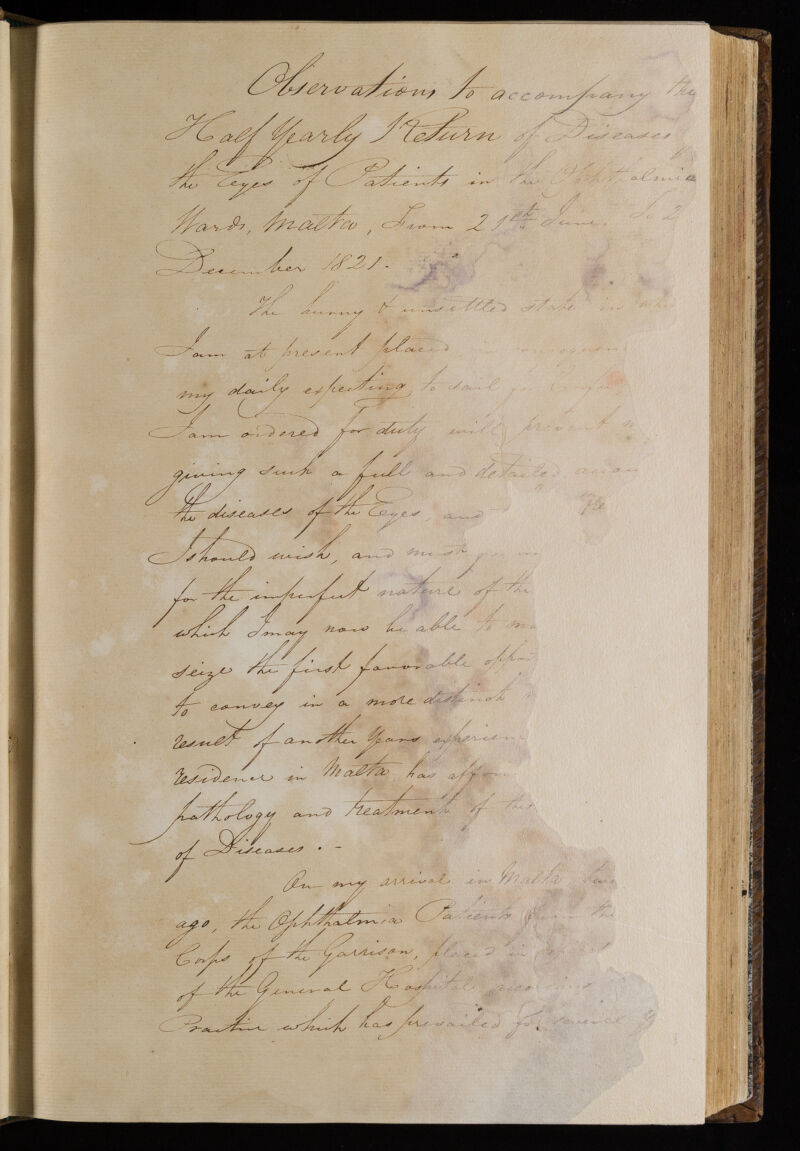 Observations to accompany the
Half Yearly Return of Diseases
the Eyes of Patients in the Ophthalmia
Wards, Malta, From 21st June to 2
December 1821.
The hurry & unsettled state in
I am at present placed in
my daily expecting to sail for
I am ordered for duty will prevent
giving such a full and detailed
the diseases of the Eyes, and
I should wish, and must
for the imperfect nature of the
which I may now be able to
seize the first favorable
to convey in a more distinct
result of another Years
residence in Malta has
pathology and treatment of
of Diseases. -
On my arrival in Malta
ago, the Ophthalmia Patients from the
Corps of the Garrison, placed in
of the General Hospital according
Practice which has prevailed for